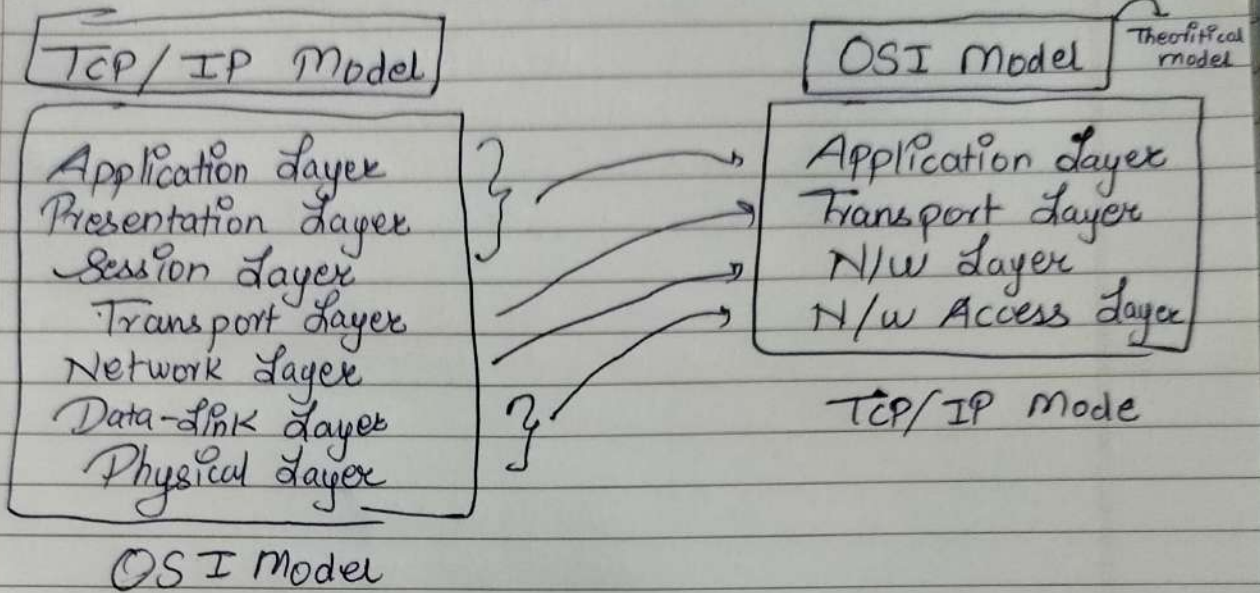 TCP/IP Model
Application Layer
Presentation Layer
Session Layer
Transport Layer
Network Layer
Data-Link Layer
Physical Layer
OSI Model
OSI Model
Theofitical
model
Application Layer
Transport Layer
N/W Layer
N/W Access Layer
TCP/IP Mode